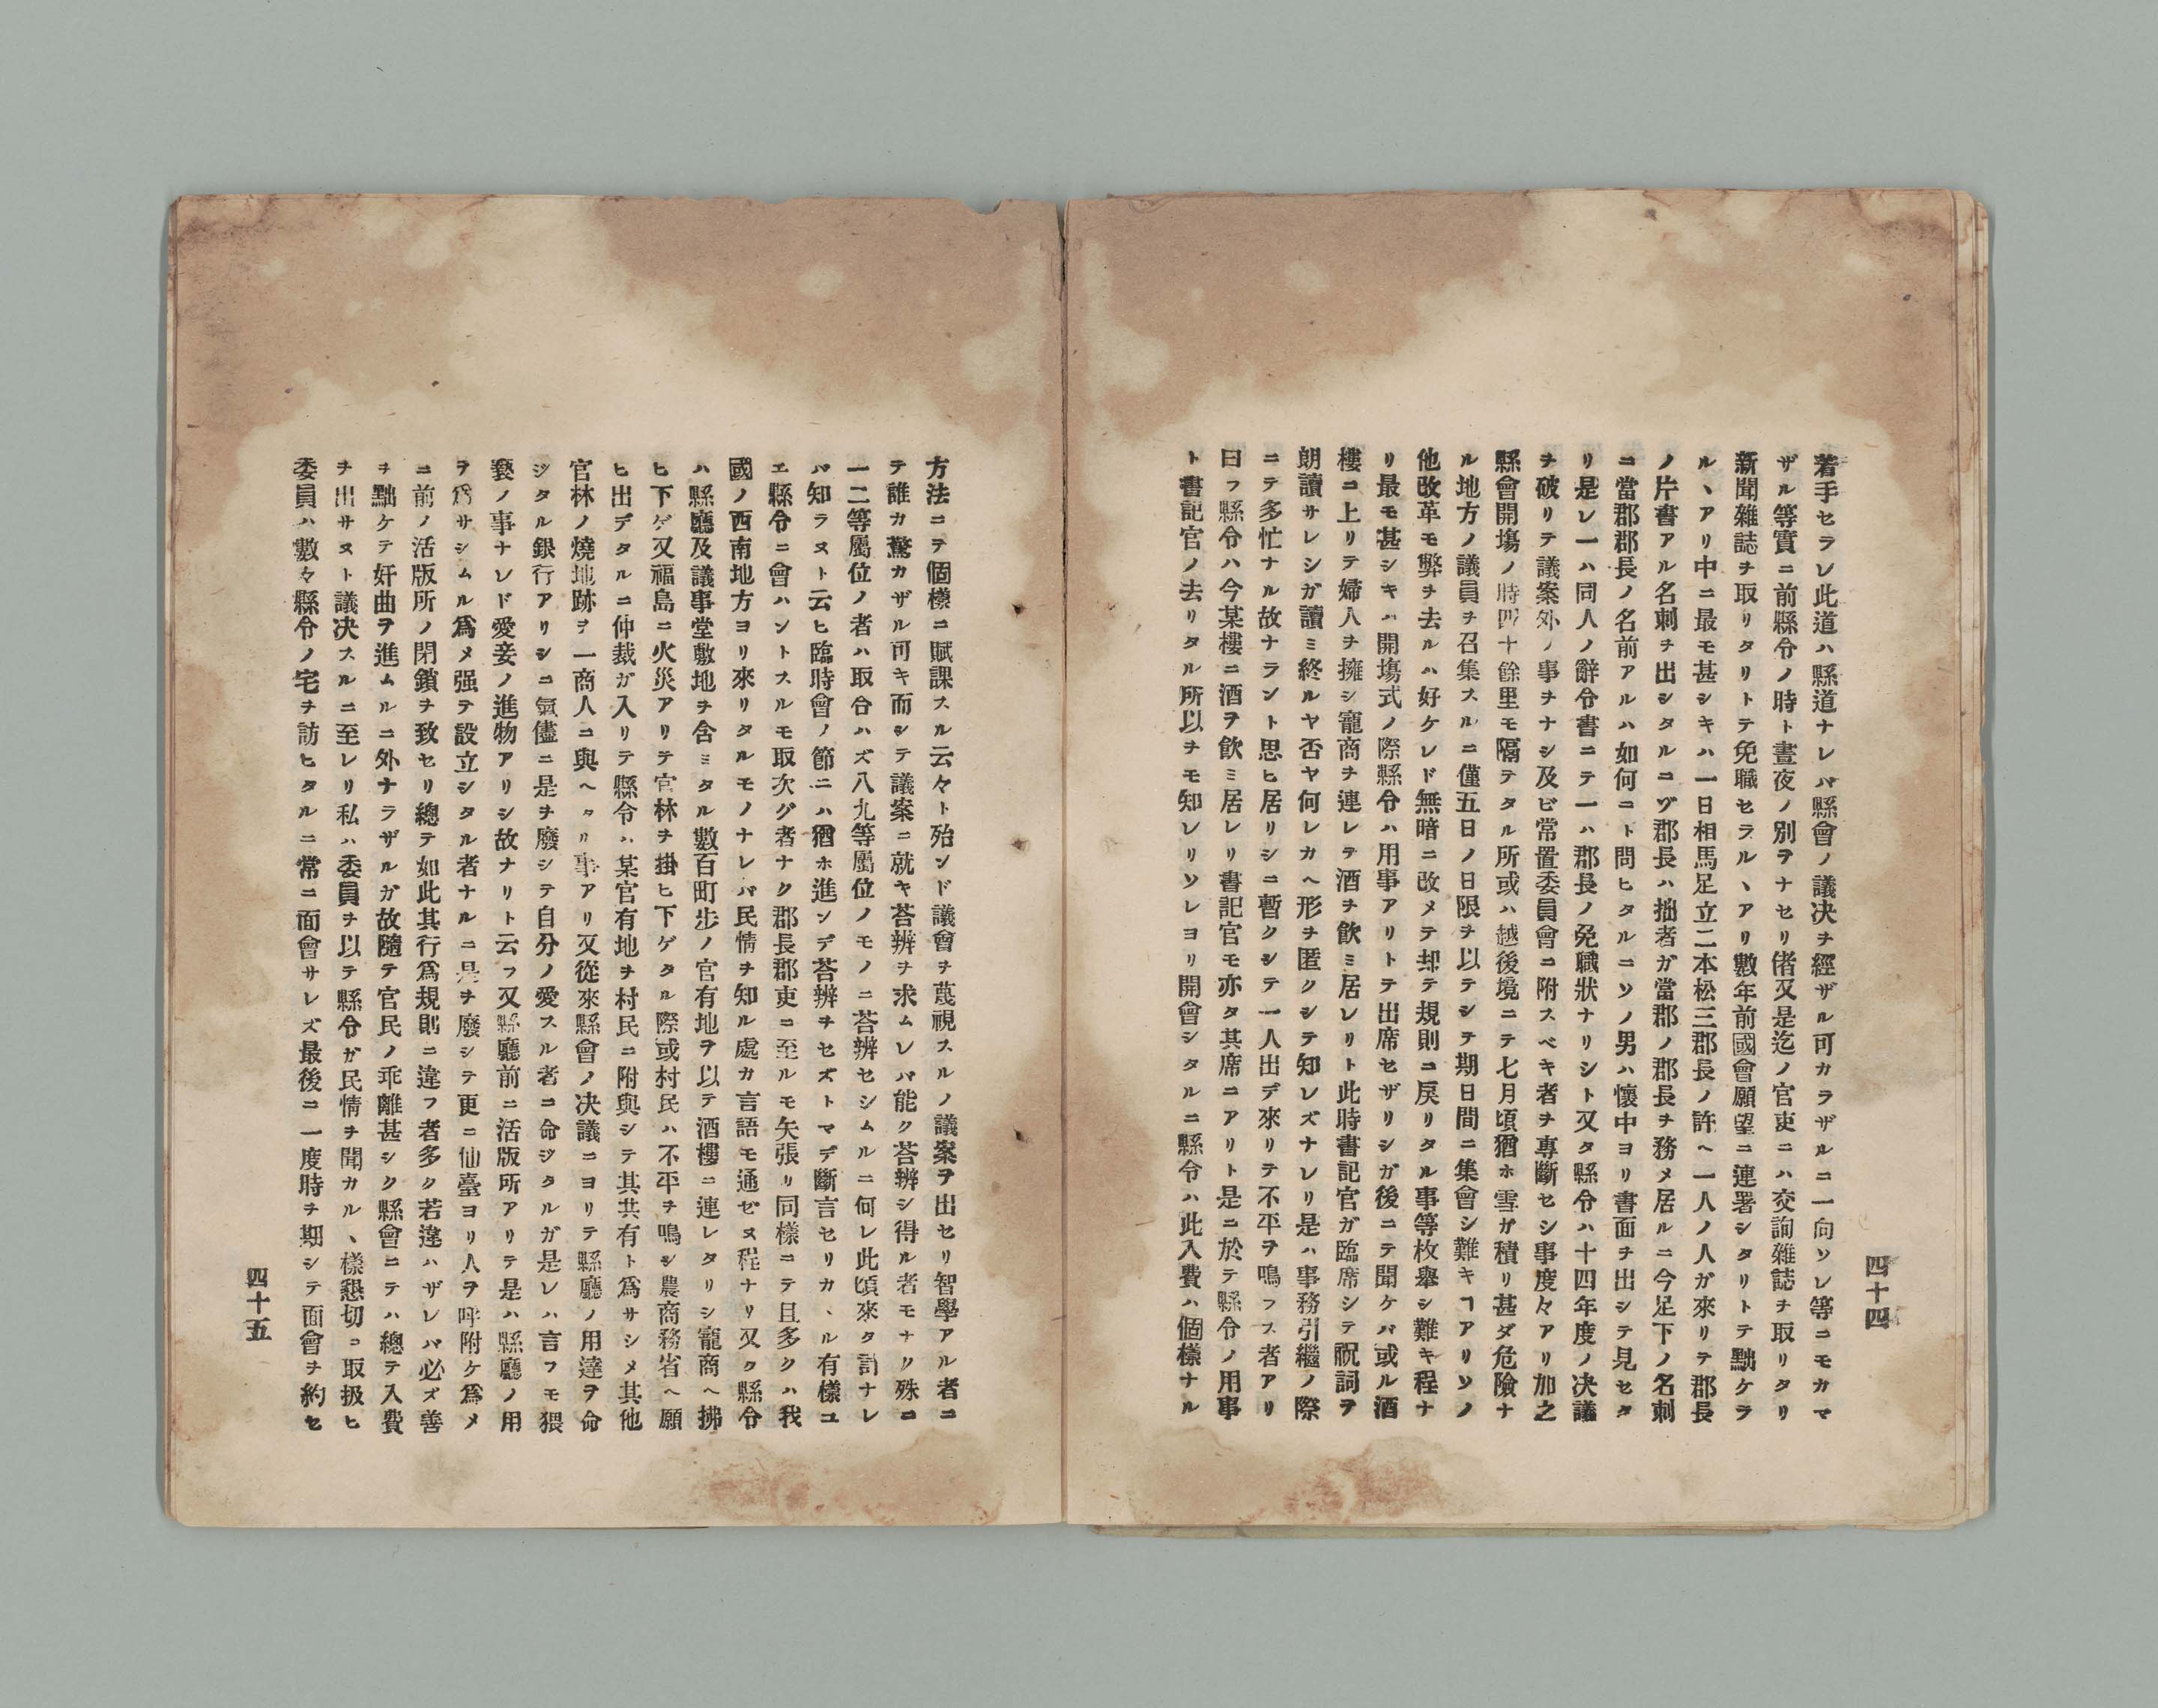 着手セラレ此道ハ縣道ナレバ縣會ノ議决ヲ經ザル可カラザルニ一向ソレ等ニモカマ
ザル等實ニ前縣令ノ時ト晝夜ノ別ヲナセリ偖又是迄ノ官吏ニハ交詢雜誌ヲ取リタリ
新聞雜誌ヲ取リタリトテ免職セラルヽアリ數年前國會願望ニ連署シタリトテ黜ケラ
ルヽアリ中ニ最モ甚シキハ一日相馬足立二本松三郡長ノ許ヘ一人ノ人ガ來リテ郡長
ノ片書アル名刺ヲ出シタルニゾ郡長ハ拙者ガ當郡ノ郡長ヲ務メ居ルニ今足下ノ名刺
ニ當郡郡長ノ名前アルハ如何ニト問ヒタルニソノ男ハ懷中ヨリ書面ヲ出シテ見セタ
リ是レ一ハ同人ノ辭令書ニテ一ハ郡長ノ免職狀ナリシト又タ縣令ハ十四年度ノ决議
ヲ破リテ議案外ノ事ヲナシ及ビ常置委員會ニ附スベキ者ヲ專斷セシ事度々アリ加之
縣會開塲ノ時四十餘里モ隔テタル所或ハ越後境ニテ七月頃猶ホ雪ガ積リ甚ダ危險ナ
ル地方ノ議員ヲ召集スルニ僅五日ノ日限ヲ以テシテ期日間ニ集會シ難キヿアリソノ
他改革モ弊ヲ去ルハ好ケレド無暗ニ改メテ却テ規則ニ戾リタル事等枚舉シ難キ程ナ
リ最モ甚シキハ開塲式ノ際縣令ハ用事アリトテ出席セザリシガ後ニテ聞ケバ或ル酒
樓ニ上リテ婦人ヲ擁シ寵商ヲ連レテ酒ヲ飮ミ居レリト此時書記官ガ臨席シテ祝詞ヲ
朗讀サレシガ讀ミ終ルヤ否ヤ何レカヘ形ヲ匿クシテ知レズナレリ是ハ事務引繼ノ際
ニテ多忙ナル故ナラント思ヒ居リシニ暫クシテ一人出デ來リテ不平ヲ鳴ラス者アリ
曰ク縣令ハ今某樓ニ酒ヲ飮ミ居レリ書記官モ亦タ其席ニアリト是ニ於テ縣令ノ用事
ト書記官ノ去リタル所以ヲモ知レリソレヨリ開會シタルニ縣令ハ此入費ハ個樣ナル
四十四
方法ニテ個樣ニ賦課スル云々ト殆ンド議會ヲ蔑視スルノ議案ヲ出セリ智學アル者ニ
テ誰カ驚カザル可キ而シテ議案ニ就キ荅辨ヲ求ムレバ能ク荅辨シ得ル者モナク殊ニ
一二等屬位ノ者ハ取合ハズ八九等屬位ノモノニ荅辨セシムルニ何レ此頃來タ計ナレ
バ知ラヌト云ヒ臨時會ノ節ニハ猶ホ進ンデ荅辨ヲセズトマデ斷言セリカヽル有樣ユ
エ縣令ニ會ハントスルモ取次グ者ナク郡長郡吏ニ至ルモ矢張リ同樣ニテ且多クハ我
國ノ西南地方ヨリ來リタルモノナレバ民情ヲ知ル處カ言語モ通ゼヌ程ナリ又タ縣令
ハ縣廳及議事堂敷地ヲ含ミタル數百町步ノ官有地ヲ以テ酒樓ニ連レタリシ寵商ヘ拂
ヒ下ゲ又福島ニ火災アリテ官林ヲ掛ヒ下ゲタル際或村民ハ不平ヲ鳴シ農商務省ヘ願
ヒ出デタルニ仲裁ガ入リテ縣令ハ某官有地ヲ村民ニ附與シテ其共有ト爲サシメ其他
官林ノ燒地跡ヲ一商人ニ與ヘタリ事アリ又從來縣會ノ决議ニヨリテ縣廳ノ用達ヲ命
ジタル銀行アリシニ氣儘ニ是ヲ廢シテ自分ノ愛スル者ニ命ジタルガ是レハ言フモ猥
褻ノ事ナレド愛妾ノ進物アリシ故ナリト云フ又縣廳前ニ活版所アリテ是ハ縣廳ノ用
ヲ爲サシムル爲メ强テ設立シタル者ナルニ是ヲ廢シテ更ニ仙臺ヨリ人ヲ呼附ケ爲メ
ニ前ノ活版所ノ閉鎖ヲ致セリ總テ如此其行爲規則ニ違フ者多ク若違ハザレバ必ズ善
ヲ黜ケテ奸曲ヲ進ムルニ外ナラザルガ故隨テ官民ノ乖離甚シク縣會ニテハ總テ入費
ヲ出サヌト議决スルニ至レリ私ハ委員ヲ以テ縣令ガ民情ヲ聞カルヽ樣懇切ニ取扱ヒ
委員ハ數々縣令ノ宅ヲ訪ヒタルニ常ニ面會サレズ最後ニ一度時ヲ期シテ面會ヲ約セ
四十五